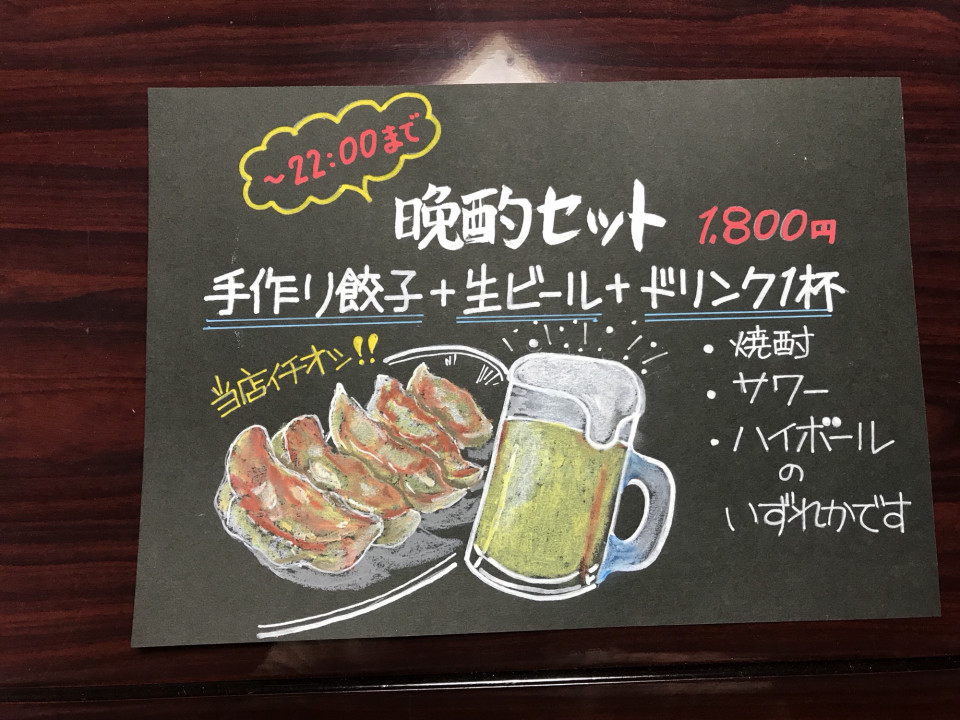 ~22:00まで
晩酌セット 1.800円
手作り餃子+生ビール+ドリンク1杯
当店イチオシ!!
・焼酎
・サワー
・ハイボール
の
いずれかです